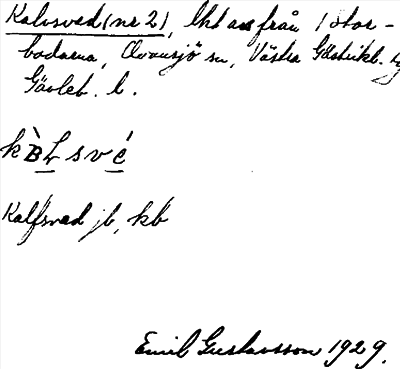 Kalvsved (nr 2), lht ass från Stor-
bodarna, Ovansjö sn, Västra Gästrikl.
Gävleb. l.
Kalfsved jb, kb
Emil Gustavsson 1929.